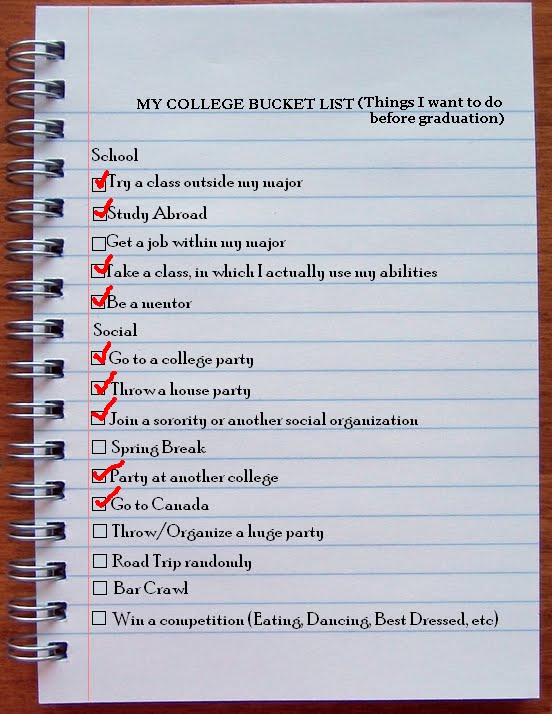 MY COLLEGE BUCKET LIST (Things I want to do
before graduation)
School
Try a class outside my major
Study Abroad
Get a job within my major
Take a class, in which I actually use my abilities
Be a mentor
Social
Go to a college party
Throw a house party
Join a sorority or another social organization
Spring Break
Party at another college
Go to Canada
Throw/Organize a huge party
Road Trip randomly
Bar Crawl
Win a competition (Eating, Dancing, Best Dressed, etc)